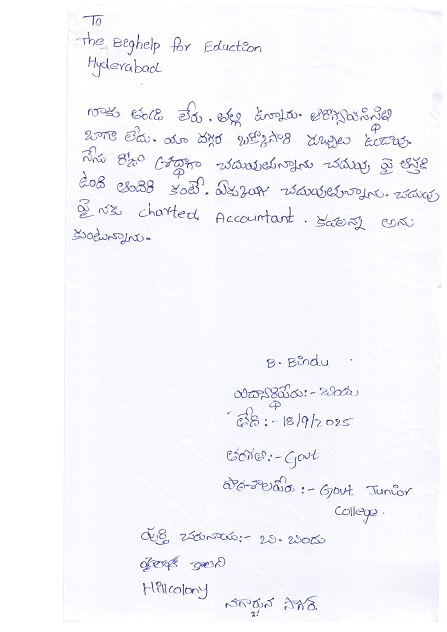 To
The Beghelp for Eduction
Hyderabad
నాకు తండ్రి లేరు. తల్లి ఉన్నారు. ఆరోగ్యపరిస్థితి
బాగా లేదు. మా దగ్గర ఒక్కోసారి డబ్బులు ఉండవు.
నేను రోజూ శ్రద్ధగా చదువుతున్నాను చదువు పై ఆసక్తి
ఉంది అందరి కంటే. చదువుతున్నాను. చదువు
పై నకు charted Accountant. కవాలన్న అను
కుంటున్నాను.
B. Bindu
విద్యార్థిపేరు:- బిందు
తేది:- 18/9/2025
తరగతి:- Govt
పాఠశాలపేరు:- Govt Junior
College.
పూర్తి చిరునామ:- బి. బిందు
కాలని
Hillcolony
నాగార్జున సాగర్